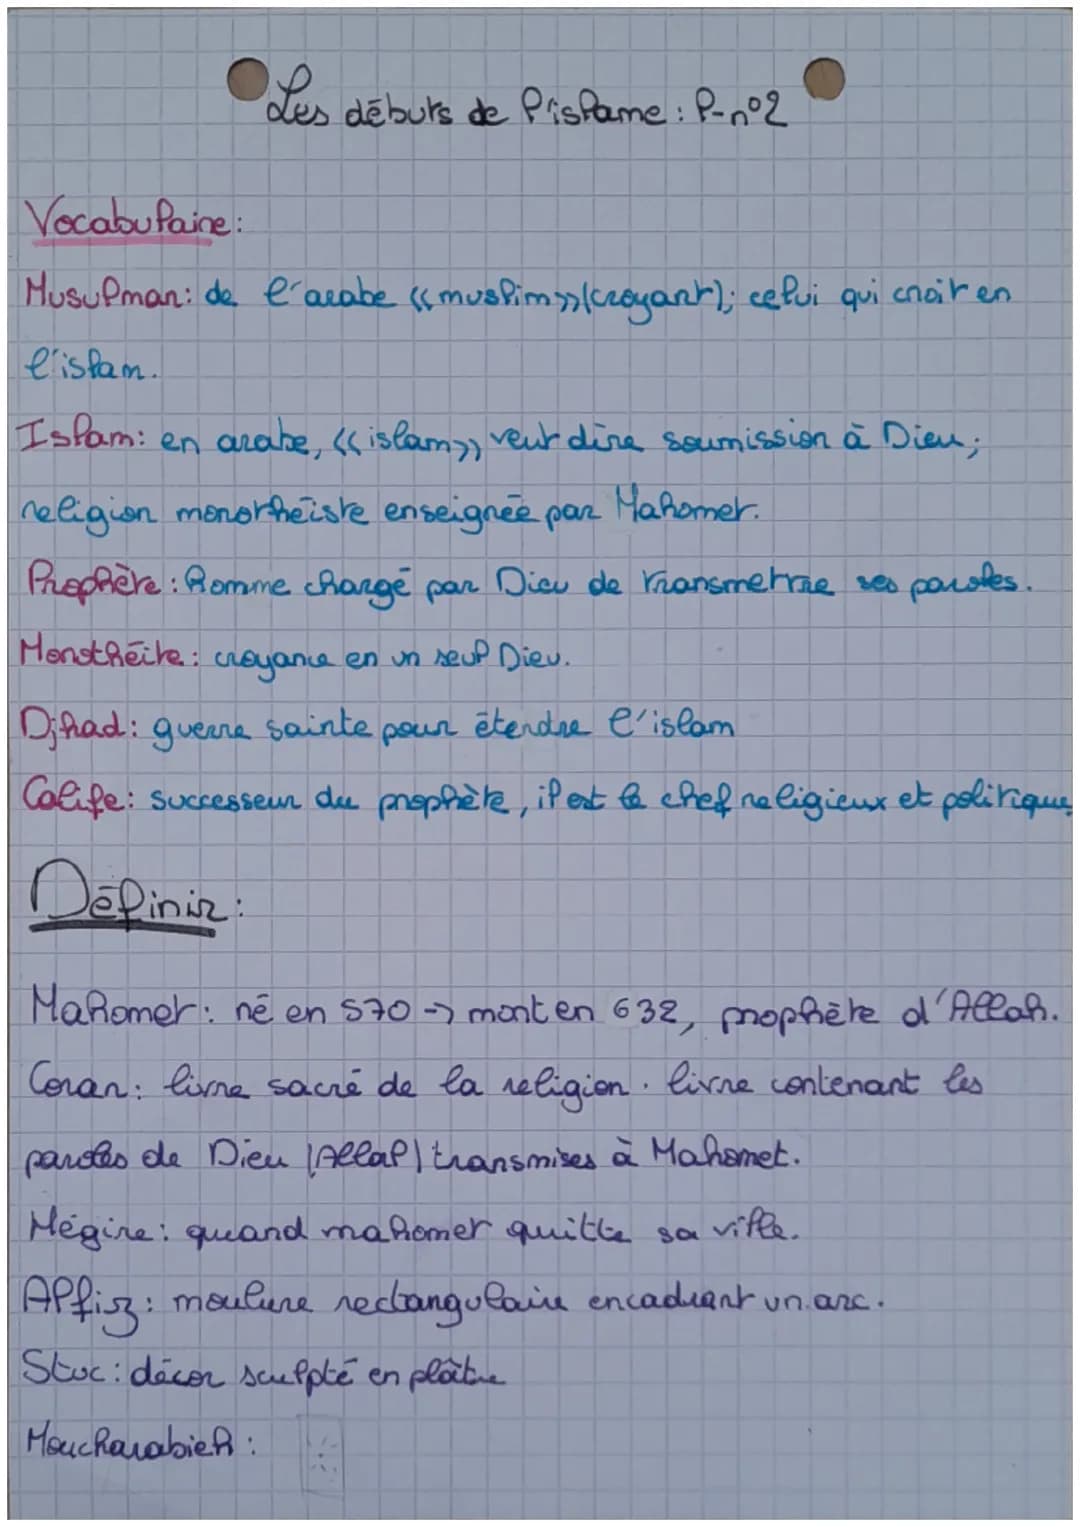 Les débuts de l'islame : P-n°2
Vocabulaire :
Musulman : de l'arabe «muslim» (croyant); celui qui croit en
l'islam.
Islam : en arabe, «islam» veut dire soumission à Dieu;
religion monothéiste enseignée par Mahomet.
Prophète : homme chargé par Dieu de transmettre ses paroles.
Monothéite : croyance en un seul Dieu.
Djhad : guerre sainte pour étendre l'islam
Calife : successeur du prophète, il est le chef religieux et politique.
Définir :
Mahomet : né en 570 → mort en 632, prophète d'Allah.
Coran : livre sacré de la religion. livre contenant les
paroles de Dieu (Allal) transmises à Mahomet.
Hégire : quand mahomet quitte sa ville.
Alfiz : moulure rectangulaire encadrant un arc.
Stuc : décor sculpté en plâtre
Moucharabieh :